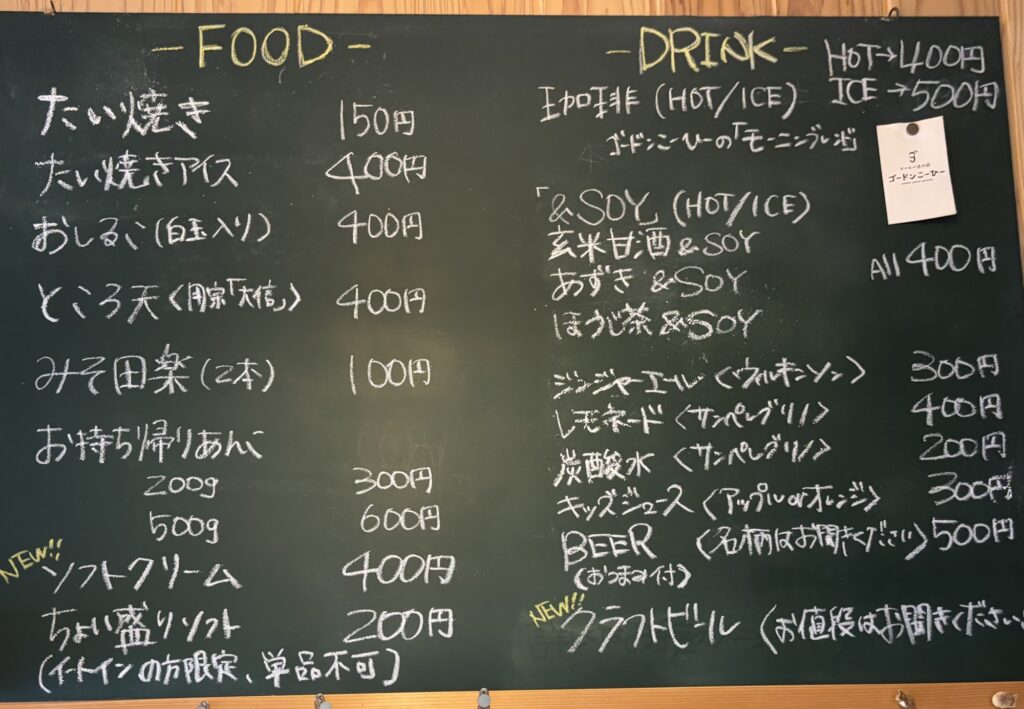 -FOOD-
たい焼き 150円
たい焼きアイス 400円
おしるこ(白玉入り) 400円
ところ天〈周宗「大信」〉 400円
みそ田楽(2本) 100円
お持ち帰りあんこ
200g 300円
500g 600円
NEW!!
ソフトクリーム 400円
ちょい盛りソフト 200円
(イートインの方限定、単品不可)
-DRINK-
珈琲(HOT/ICE) HOT→400円
ICE→500円
ゴードンこーひーの「モーニングブレンド」
ゴードンこーひー
「&SOY(HOT/ICE)
玄米甘酒&SOY All 400円
あずき&SOY
ほうじ茶&SOY
ジンジャーエール〈ウィルキンソン〉 300円
レモネード〈サンペレグリノ〉 400円
炭酸水〈サンペレグリノ〉 200円
キッズジュース〈アップルorオレンジ〉 300円
BEER〈名柄はお聞きください〉 500円
(おつまみ付)
NEW!!
クラフトビール(お値段はお聞きください